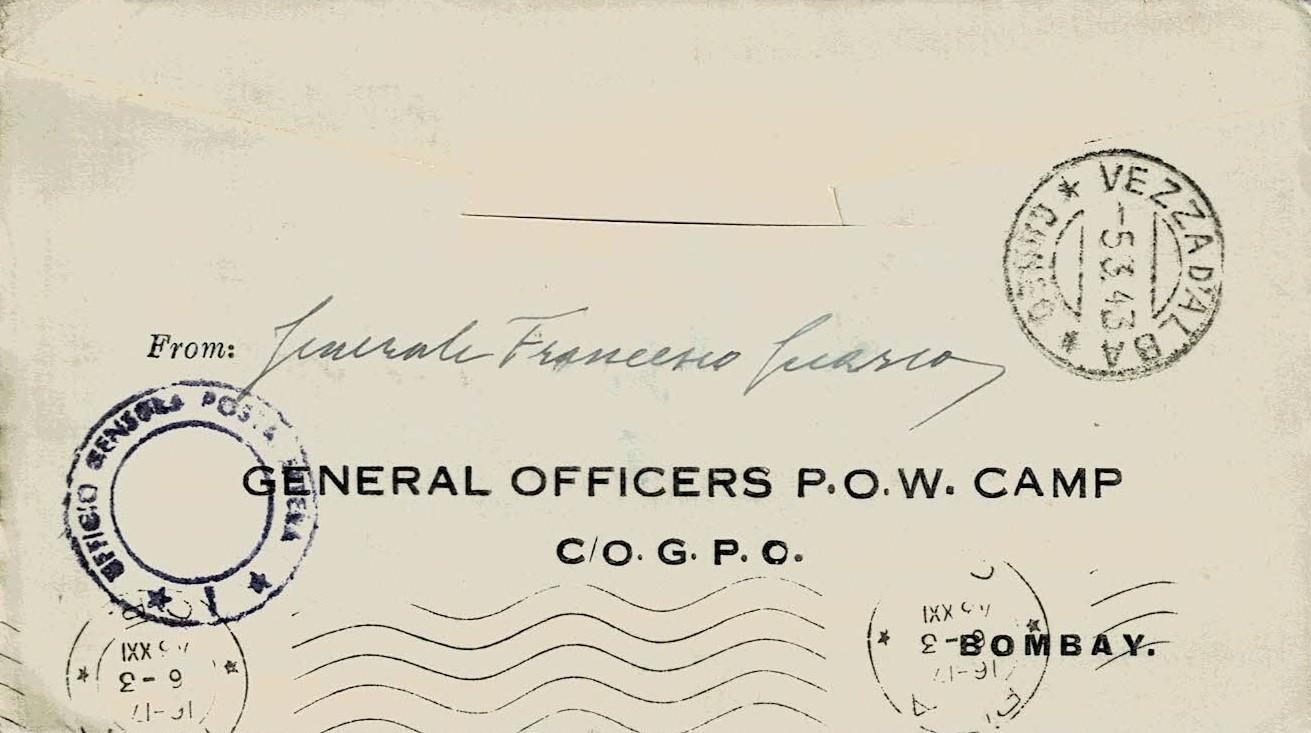 VEZZA D'ALBA
-5.3.43
From: Generale Francesco Guasco
UFFICIO CENSURA POSTA ESTERA
GENERAL OFFICERS P.O.W. CAMP
C/O. G. P. O.
BOMBAY.
16-17
6-3
XXI
16-17
6-3
43 XXI